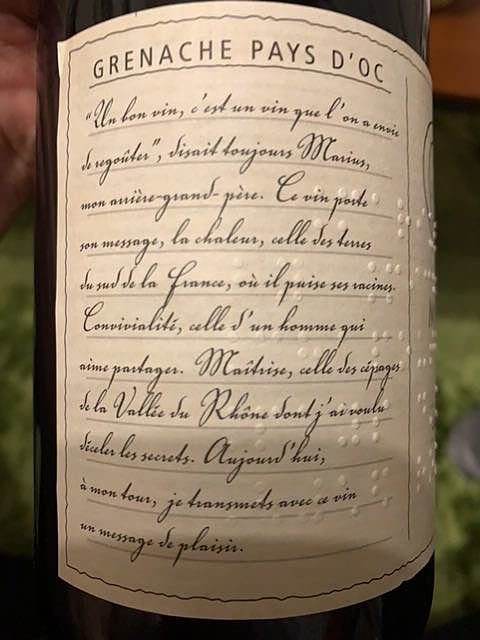 GRENACHE PAYS D'OC
"Un bon vin, c'est un vin que l'on a envie
de regoûter", disait toujours Marius,
mon arrière-grand-père. Ce vin porte
son message, la chaleur, celle des terres
du sud de la France, où il puise ses racines.
Convivialité, celle d'un homme qui
aime partager. Maîtrise, celle des cépages
de la Vallée du Rhône dont j'ai voulu
déceler les secrets. Aujourd'hui,
à mon tour, je transmets avec ce vin
un message de plaisir.